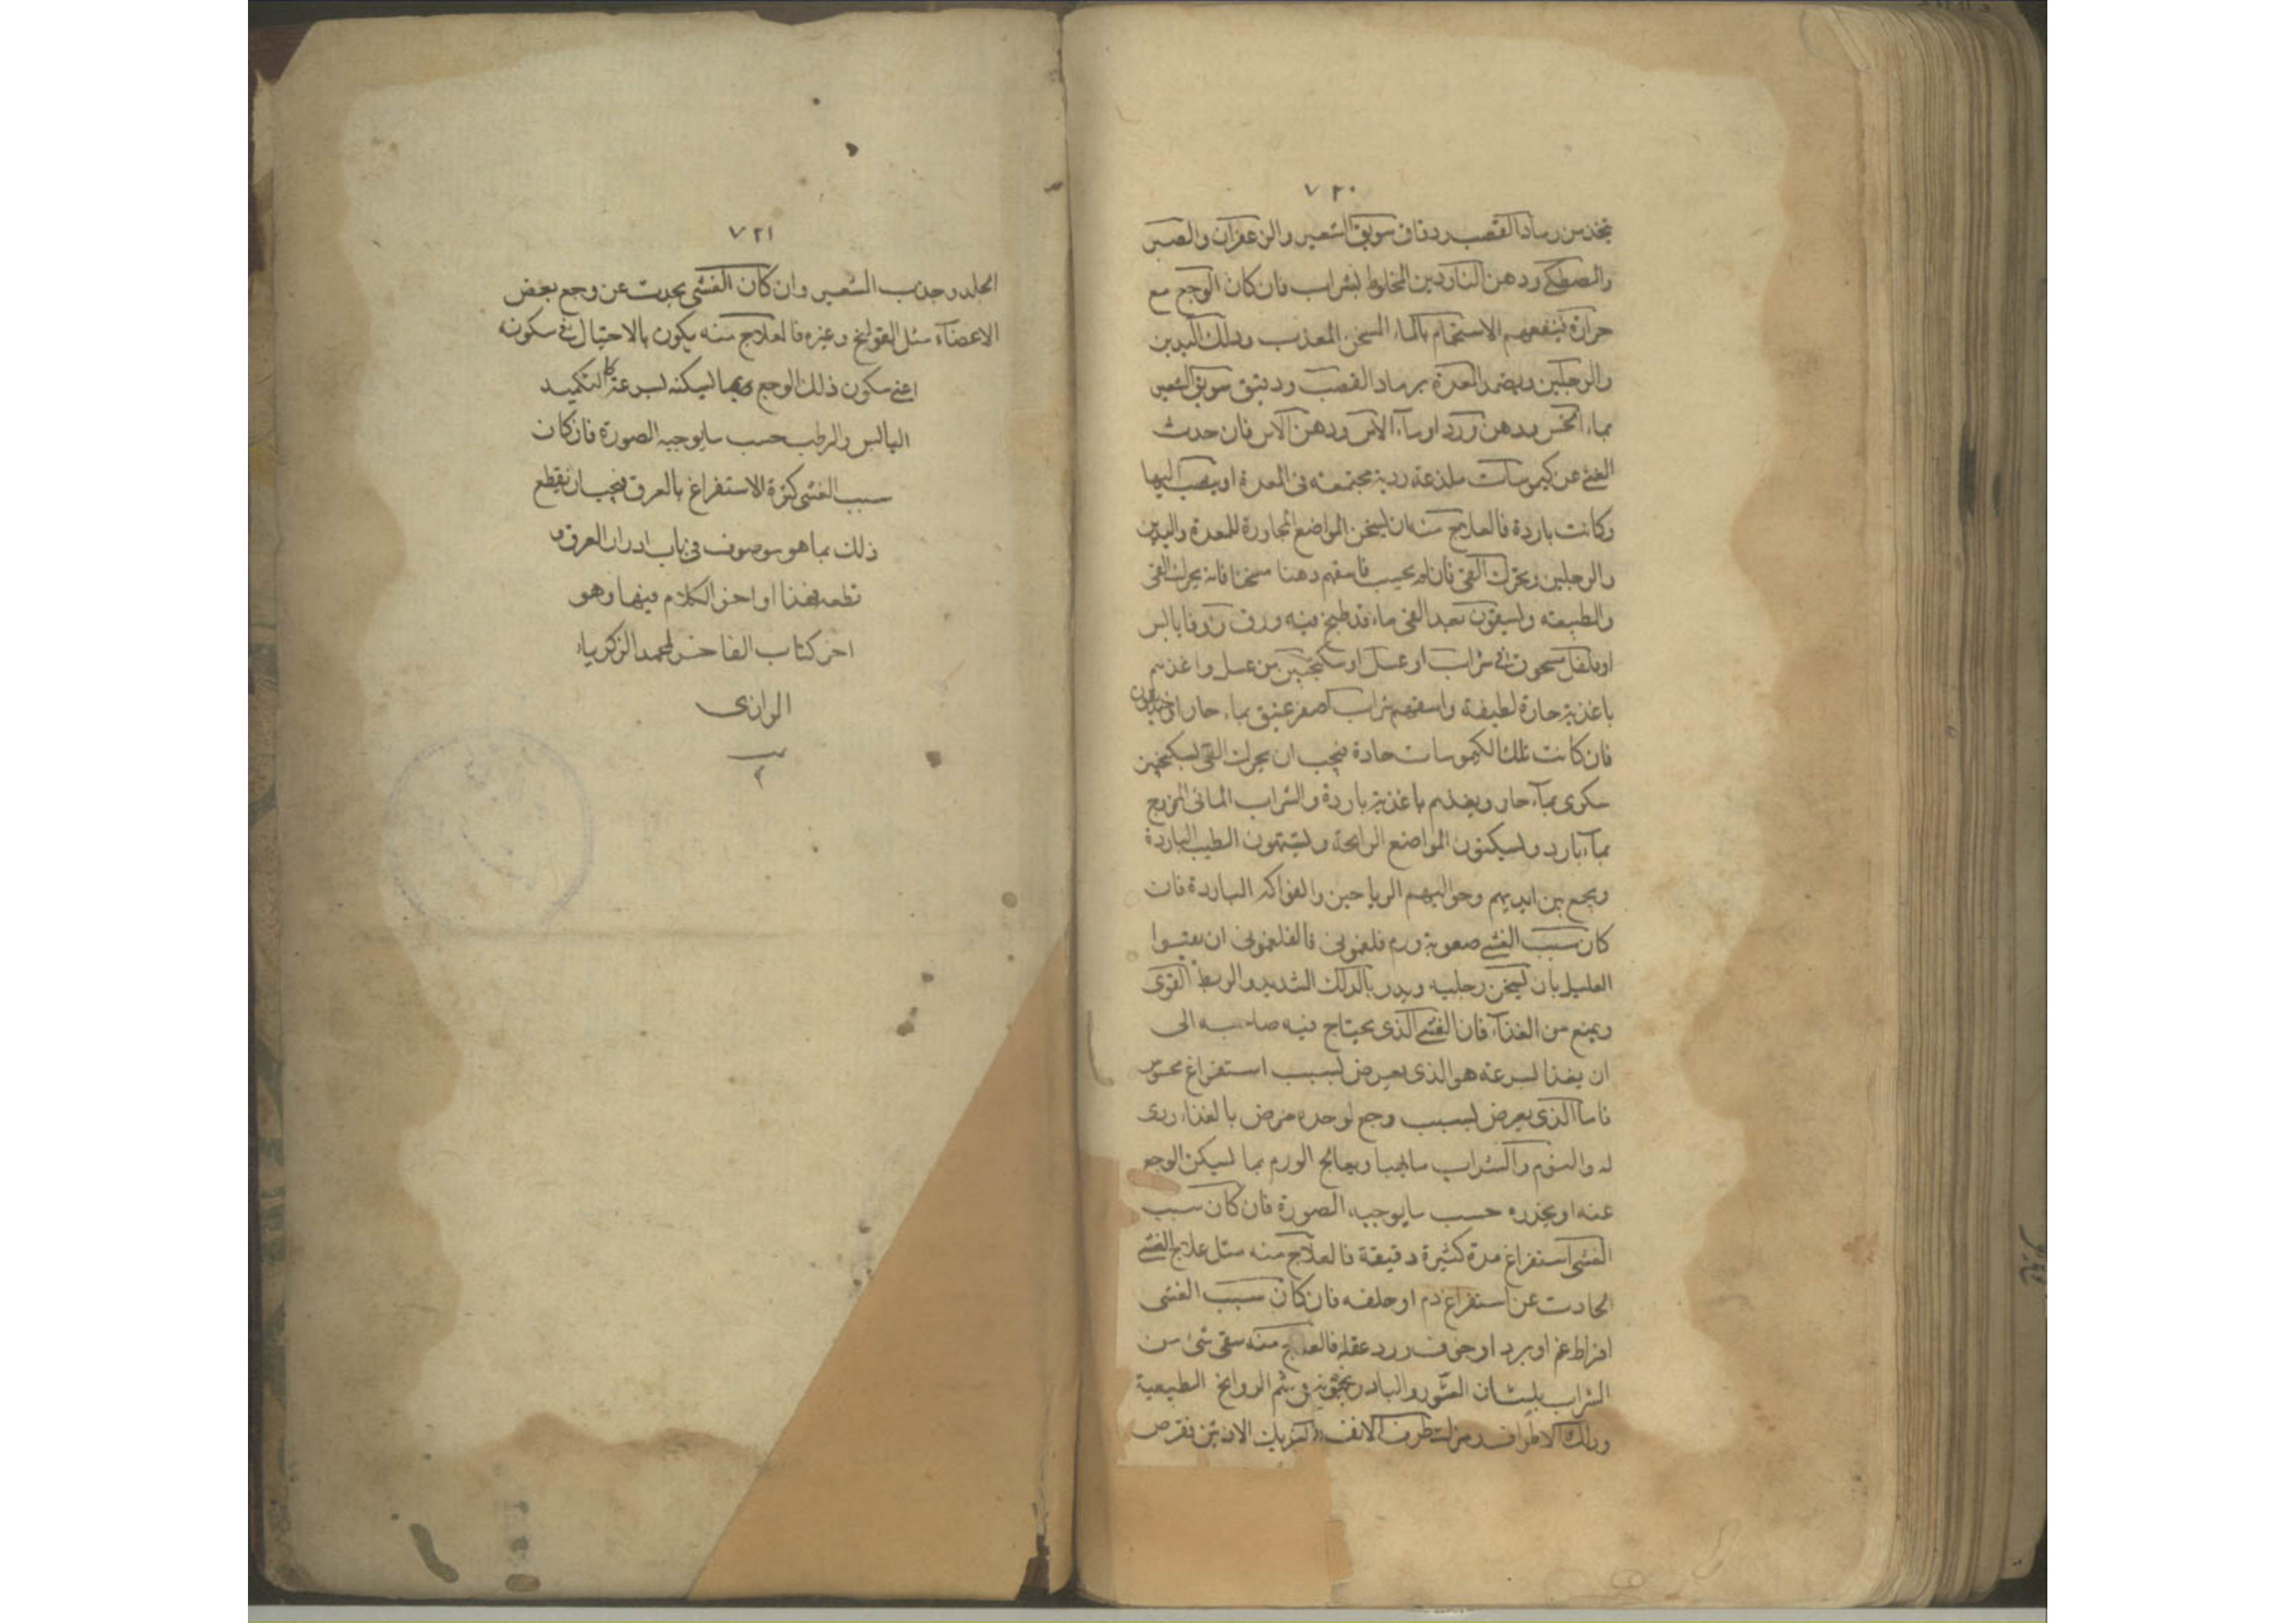 ٧٢٠
يتخذ من رماد القصب ودقاق سويق الشعير والزعفران والصبر
والمصطكى ودهن الناردين المخلوط بشراب فان كان الوجع مع
حرارة فينفعهم الاستحمام بالماء السخن المعذب ودلك اليدين
والرجلين ويضمد المعدة برماد القصب ودقيق سويق الشعير
بماء الخس ودهن ورد او ماء الآس ودهن الآس فان حدث
الغشى عن كيموسات ملذعة ردية مجتمعة فى المعدة او ينصب اليها
وكانت باردة فالعلاج منه ان يسخن المواضع المجاورة للمعدة واليدين
والرجلين ويحرك القئ فان لم يجيب فاسقهم دهنا مسخنا فانه يحرك القئ
والطبيعة ويسقون بعد القئ ماء قد طبخ فيه ورق زوفا يابس
او فلفل مسحوق فى شراب او عسل او سكنجبين من عسل واغذهم
باغذية حارة لطيفة واسقهم شراب اصفر عتيق بماء حار
فان كانت تلك الكيموسات حادة فيجب ان يحرك القئ بسكنجبين
سكرى بماء حار ويغذهم باغذية باردة والشراب المائى المزوج
بماء بارد ويسكنون المواضع الرايحة ويشتمون الطيب الباردة
ويجمع بين ايديهم وحواليهم الرياحين والفواكه الباردة فان
كان سبب الغشى صعوبة ورم فلغمونى فالفلغمونى ان
العليل بان يسخن رجليه ويديه بالدلك الشديد والربط القوى
ويمنع من الغذاء فان الغشى الذى يحتاج فيه صاحبه الى
ان يغذا بسرعة هو الذى يعرض بسبب استفراغ
فاما الذى يعرض بسبب وجع لوحده مرض بالغذاء ردى
له والنوم والشراب ويعالج الورم بما يسكن الوجع
عنه او يخدره حسب ما يوجبه الصورة فان كان سبب
الغشى استفراغ مدة كثيرة دقيقة فالعلاج منه مثل علاج الغشى
الحادث عن استفراغ دم او خلفه فان كان سبب الغشى
افراط غم او برد او خوف ورد عقله فالعلاج منه سقى شئ من
الشراب بلسان الثور والبادرنجبويه وشم الروايح الطيبة
ودلك الاطراف طرف الانف الاذنين وقرص
٧٢١
الجلد وجذب الشعير وان كان الغشى يحدث عن وجع بعض
الاعضاء مثل القولنج وغيره فالعلاج منه يكون بالاحتيال فى سكونه
اعنى سكون ذلك الوجع بما يسكنه بسرعة كالتكميد
اليابس والرطب حسب ما يوجبه الصورة فان كان
سبب الغشى كثرة الاستفراغ بالعرق فيجب ان يقطع
ذلك بما هو موصوف فى باب ادرار العرق و
قطعه فهذا اواخر الكلام فيها وهو
اخر كتاب الفاخر لمحمد الزكرياء
الرازى